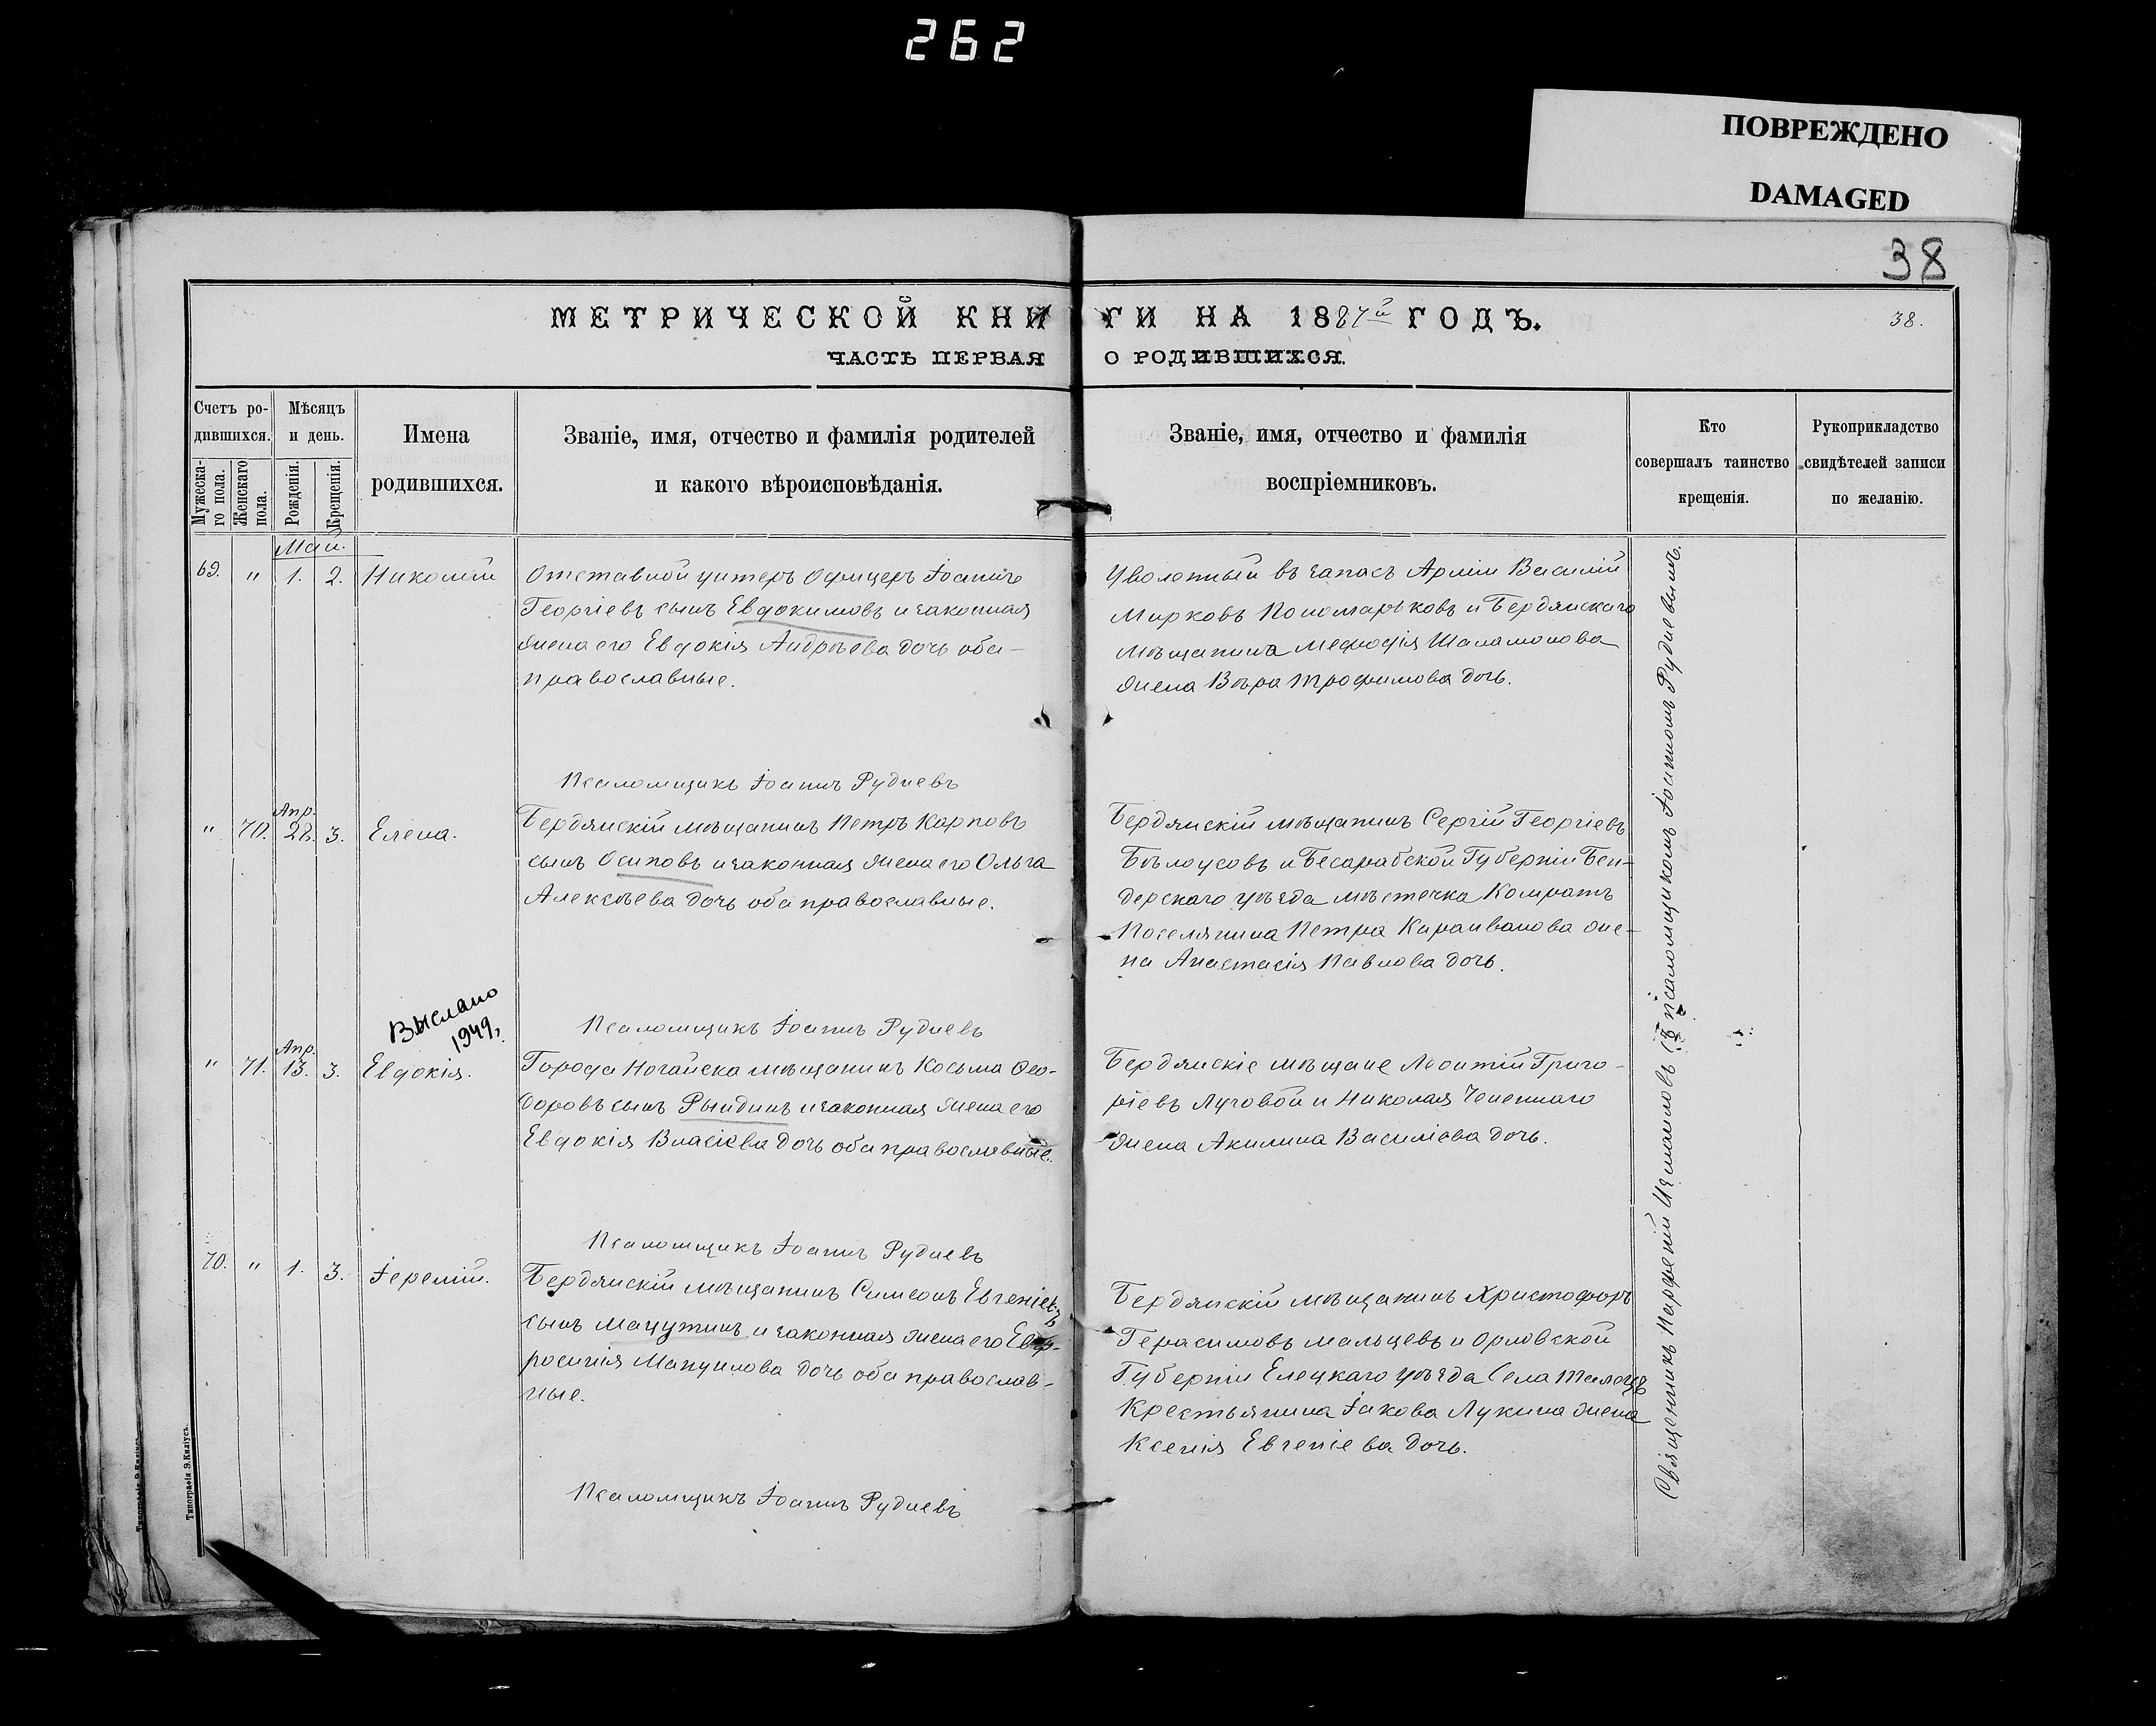 262
ПОВРЕЖДЕНО
DAMAGED
38
МЕТРИЧЕСКОЙ КНИГИ НА 1887й ГОДЪ.
38.
ЧАСТЬ ПЕРВАЯ О РОДИВШИХСЯ.
Счетъ ро-
дившихся.
Мужеска-
го пола.
Женскаго
пола.
Мѣсяцъ
и день.
Рожденія.
Крещенія.
Имена
родившихся.
Званіе, имя, отчество и фамилія родителей
и какого вѣроисповѣданія.
Званіе, имя, отчество и фамилія
воспріемниковъ.
Кто
совершалъ таинство
крещенія.
Рукоприкладство
свидѣтелей записи
по желанію.
Май.
69. " 1. 2. Николай
Отставной унтеръ Офицеръ Іоаннъ
Георгіевъ сынъ Евдокимовъ и законная
жена его Евдокія Андрѣева дочь оба
православные.
Уволенный въ запасъ Арміи Василій
Марковъ Пономарьковъ и Бердянскаго
мѣщанина Мефодія Шаламонова
жена Вѣра Трофимова дочь.
Псаломщикъ Іоаннъ Рудневъ
" 70. Апр. 28. 3. Елена.
Бердянскій мѣщанинъ Петръ Карповъ
сынъ Осиповъ и законная жена его Ольга
Алексѣева дочь оба православные.
Бердянскій мѣщанинъ Сергій Георгіевъ
Бѣлоусовъ и Бесарабской Губерніи Бен-
дерскаго уѣзда мѣстечка Комратъ
Поселянина Петра Караиванова же-
на Анастасія Павлова дочь.
Выслано
1949,
Псаломщикъ Іоаннъ Рудневъ
" 71. Апр. 13. 3. Евдокія.
Города Ногайска мѣщанинъ Косьма Ѳео-
доровъ сынъ Рындинъ и законная жена его
Евдокія Власіева дочь оба православные.
Бердянскіе мѣщане Леонтій Григо-
ріевъ Луговой и Николая Чепеннаго
жена Акилина Василіева дочь.
Псаломщикъ Іоаннъ Рудневъ
70. " 1. 3. Іеремій.
Бердянскій мѣщанинъ Симеонъ Евгеніевъ
сынъ Мацутинъ и законная жена его Евф-
росинія Мануилова дочь оба православ-
ные.
Бердянскій мѣщанинъ Христофоръ
Герасимовъ Мальцевъ и Орловской
Губерніи Елецкаго уѣзда Села
Крестьянина Іакова Лукина жена
Ксенія Евгеніева дочь.
Псаломщикъ Іоаннъ Рудневъ
Священникъ Парфеній Измаиловъ съ псаломщикомъ Іоанномъ Рудневымъ.
Типографія Э.Киліусъ